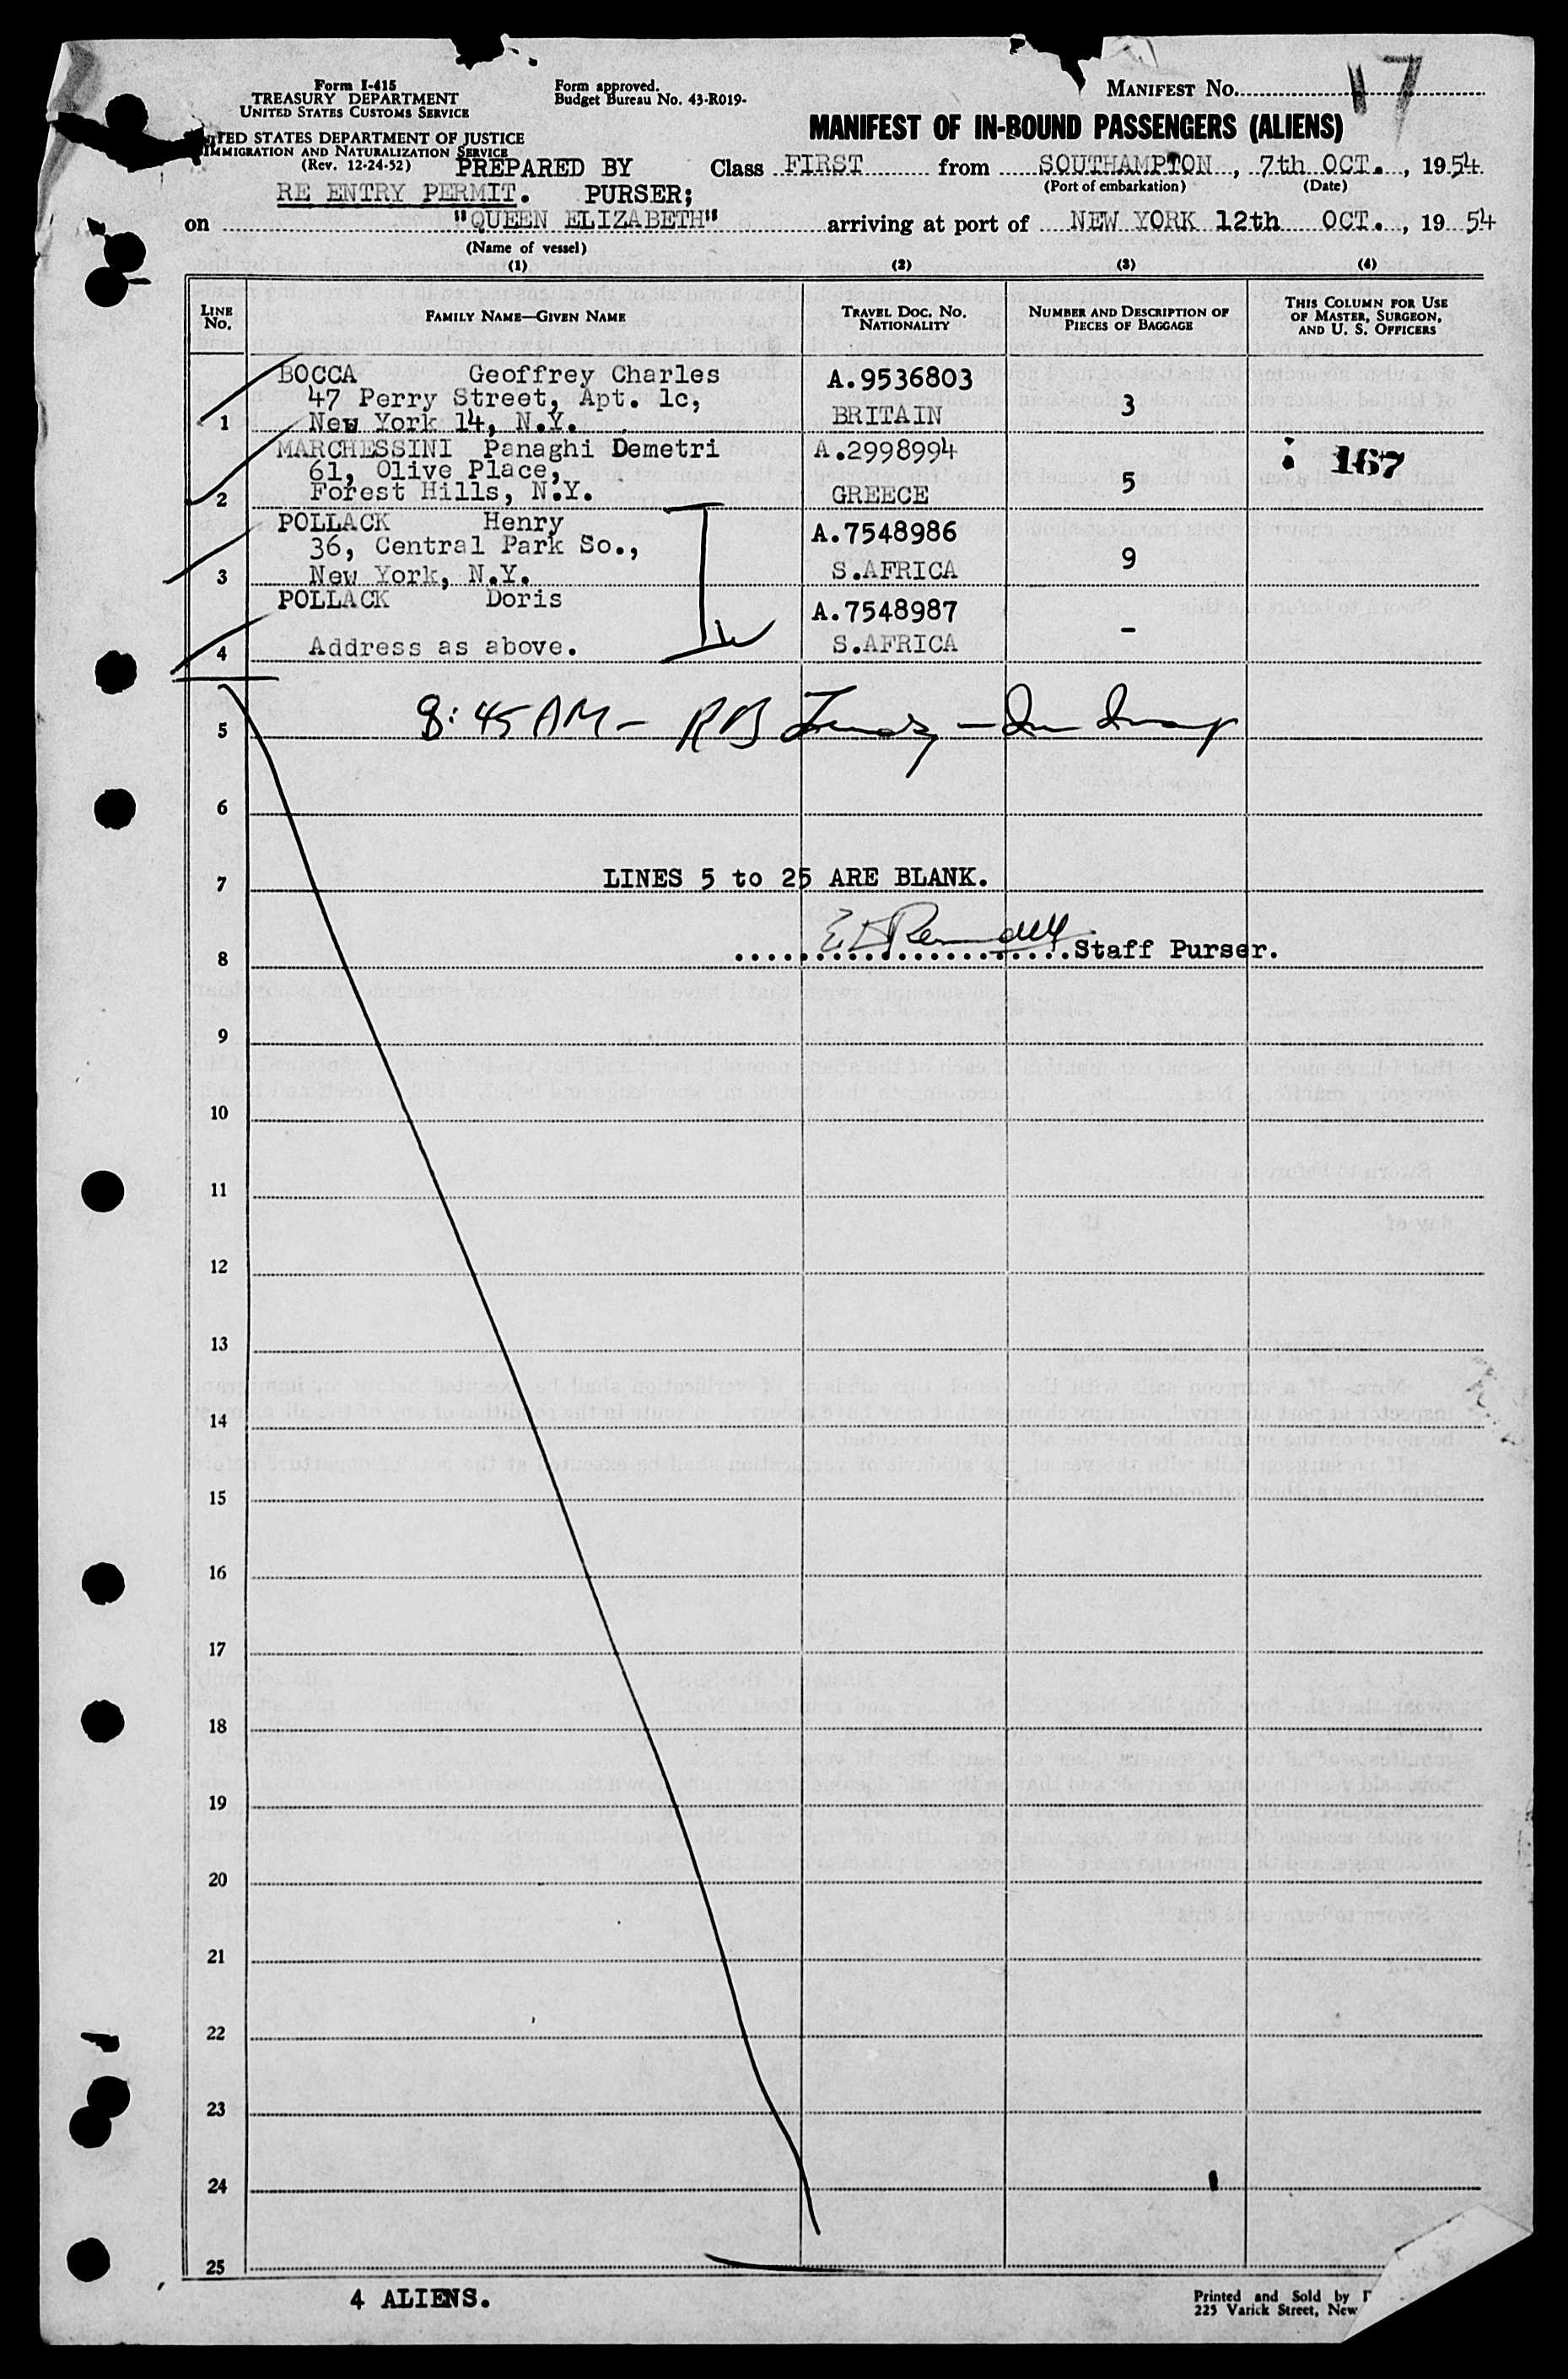 Form I-415
TREASURY DEPARTMENT
UNITED STATES CUSTOMS SERVICE
Form approved.
Budget Bureau No. 43-R019-
MANIFEST No. 17
STATES DEPARTMENT OF JUSTICE
IMMIGRATION AND NATURALIZATION SERVICE
(Rev. 12-24-52)
MANIFEST OF IN-BOUND PASSENGERS (ALIENS)
PREPARED BY
Class FIRST from SOUTHAMPTON, 7th OCT., 1954
(Port of embarkation) (Date)
RE ENTRY PERMIT. PURSER;
on "QUEEN ELIZABETH" arriving at port of NEW YORK 12th OCT., 1954
(Name of vessel)
(1) (2) (3) (4)
LINE No. FAMILY NAME—GIVEN NAME TRAVEL DOC. NO. NATIONALITY NUMBER AND DESCRIPTION OF PIECES OF BAGGAGE THIS COLUMN FOR USE OF MASTER, SURGEON, AND U. S. OFFICERS
BOCCA Geoffrey Charles A.9536803
47 Perry Street, Apt. 1c, BRITAIN 3
1 New York 14, N.Y.
MARCHESSINI Panaghi Demetri A.2998994 167
61, Olive Place, 5
2 Forest Hills, N.Y. GREECE
POLLACK Henry A.7548986
36, Central Park So., 9
3 New York, N.Y. S.AFRICA
POLLACK Doris A.7548987
-
4 Address as above. S.AFRICA
5 8:45 AM -
6
7 LINES 5 to 25 ARE BLANK.
8 Staff Purser.
9
10
11
12
13
14
15
16
17
18
19
20
21
22
23
24
25
4 ALIENS.
Printed and Sold by
225 Varick Street, New